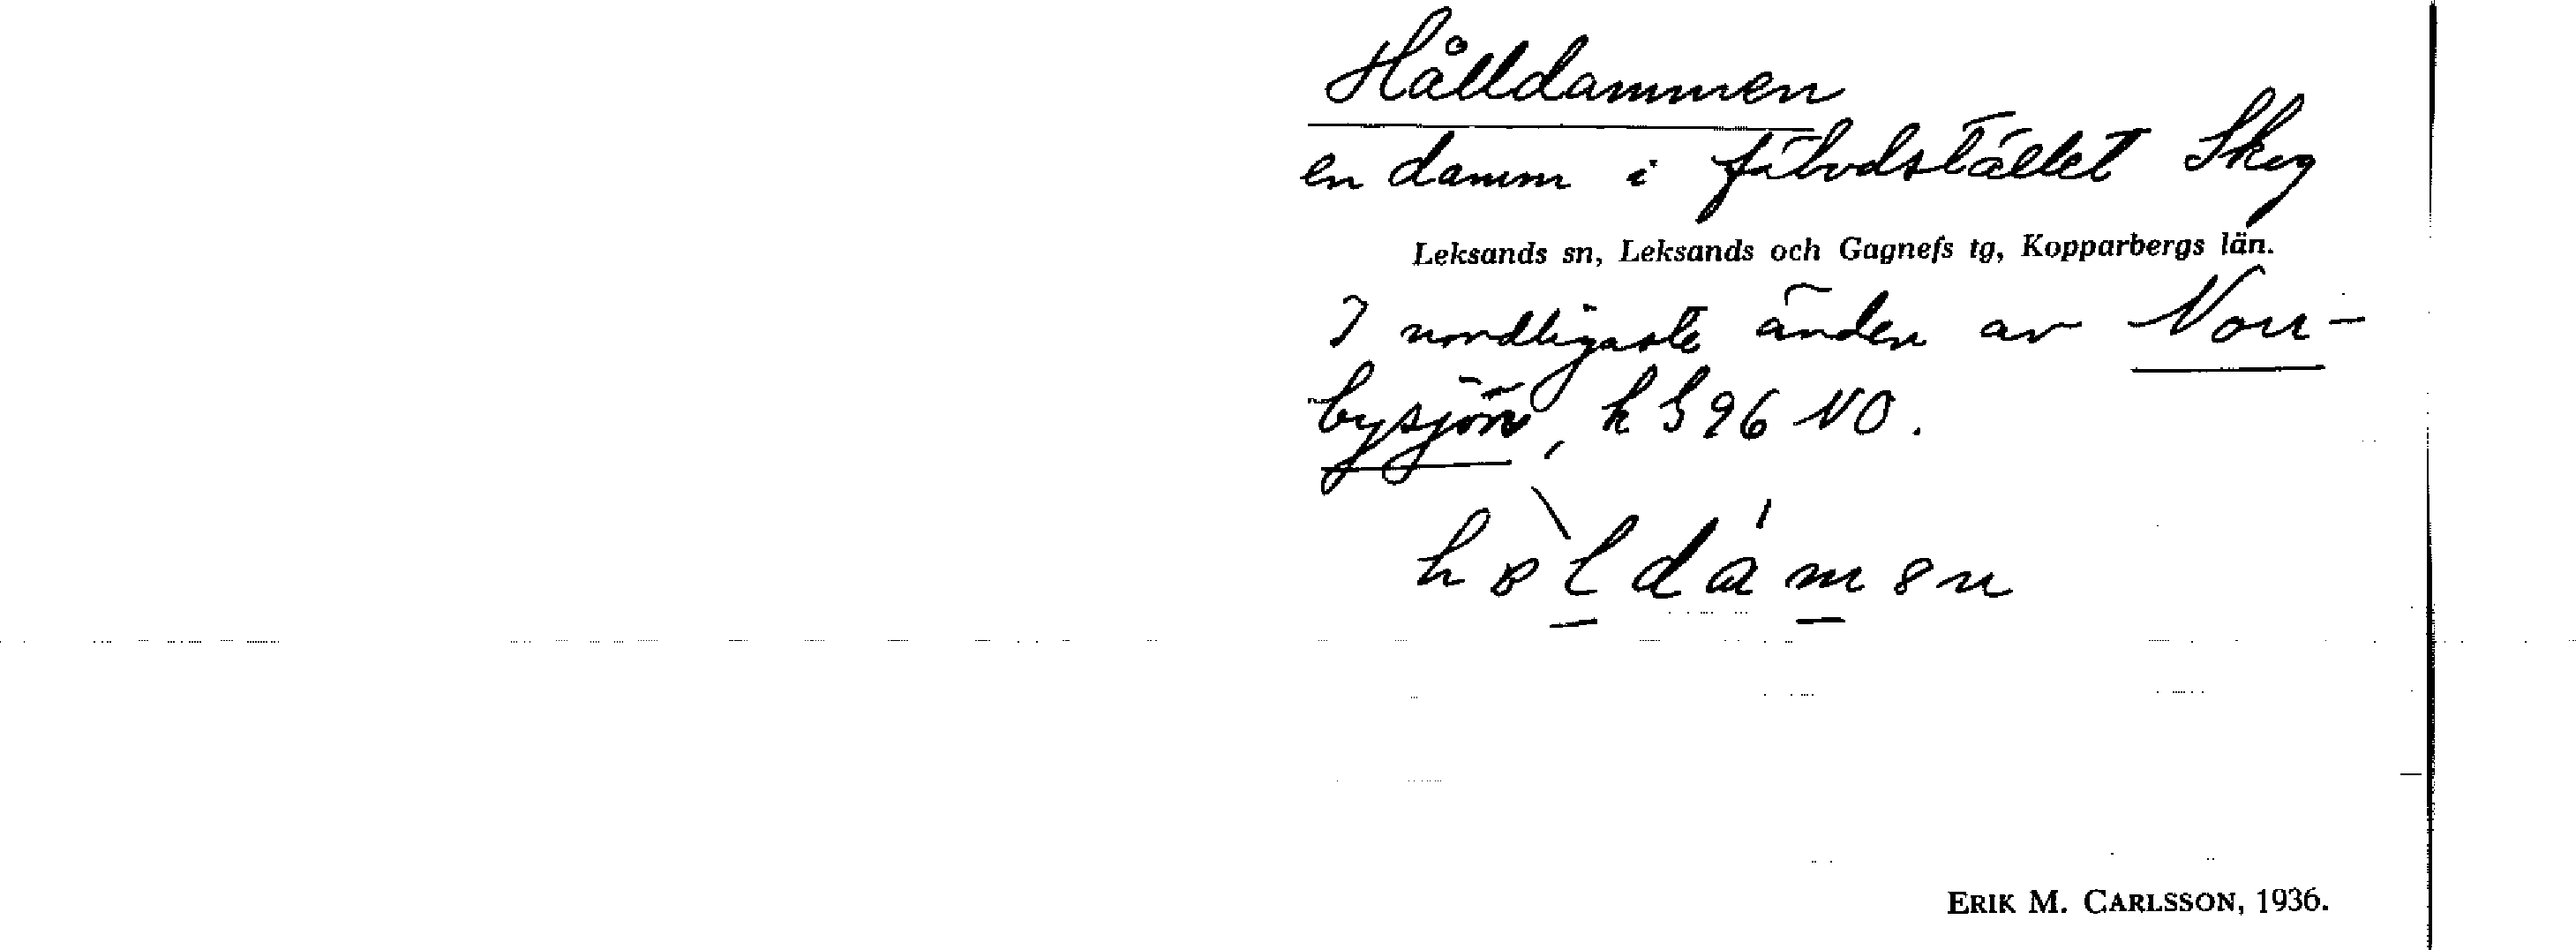 Hålldammen
en damm i fäbodstället Skog
Leksands sn, Leksands och Gagnefs tg, Kopparbergs län.
I nordligaste änden av Norr-
bysjön, k S 96 NO.
ERIK M. CARLSSON, 1936.